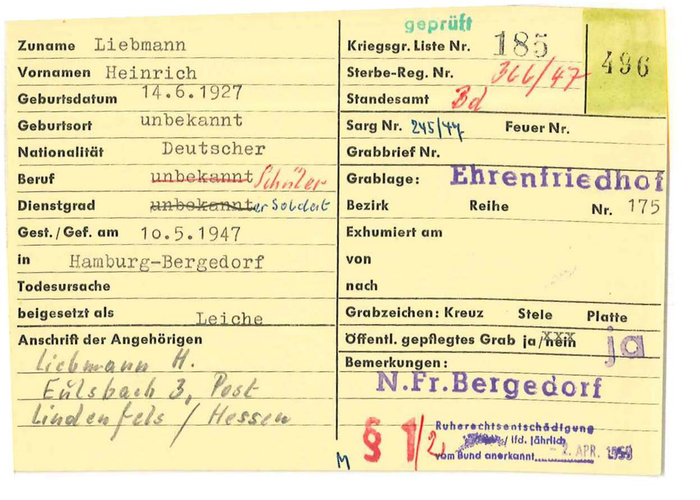 geprüft
Zuname Liebmann
Vornamen Heinrich
Geburtsdatum 14.6.1927
Geburtsort unbekannt
Nationalität Deutscher
Beruf unbekannt Schüler
Dienstgrad unbekannt er Soldat
Gest./Gef. am 10.5.1947
in Hamburg-Bergedorf
Todesursache
beigesetzt als Leiche
Anschrift der Angehörigen
Liebmann H.
Eulsbach 3, Post
Lindenfels / Hessen
Kriegsgr. Liste Nr. 185
496
Sterbe-Reg. Nr. 366/47
Standesamt Bd
Sarg Nr. 245/47 Feuer Nr.
Grabbrief Nr.
Grablage: Ehrenfriedhof
Bezirk Reihe Nr. 175
Exhumiert am
von
nach
Grabzeichen: Kreuz Stele Platte
Öffentl. gepflegtes Grab ja/nein ja
Bemerkungen:
N.Fr.Bergedorf
§ 1/2
Ruherechtsentschädigung
/ lfd. jährlich
vom Bund anerkannt 2. APR.
M